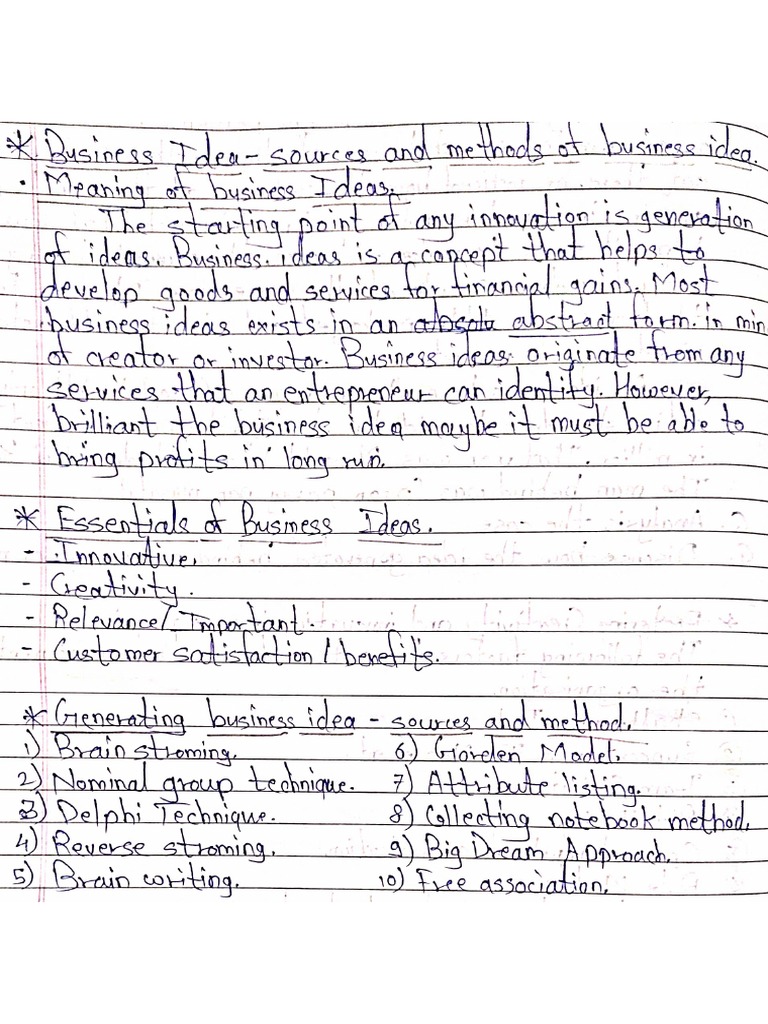 * Business Idea - sources and methods of business idea.
· Meaning of business Ideas.
The starting point of any innovation is generation
of ideas. Business ideas is a concept that helps to
develop goods and services for financial gains. Most
business ideas exists in an abstract form. in min
of creator or investor. Business ideas originate from any
services that an entrepreneur can identity. However,
brilliant the business idea maybe it must be able to
bring profits in long run.
* Essentials of Business Ideas.
- Innovative.
- Creativity.
- Relevance/ Important.
- Customer satisfaction / benefits.
* Generating business idea - sources and method.
1) Brain stroming.
2) Nominal group technique.
3) Delphi Technique.
4) Reverse stroming.
5) Brain writing.
6) Giorden Model.
7) Attribute listing.
8) Collecting notebook method.
9) Big Dream Approach.
10) Free association.